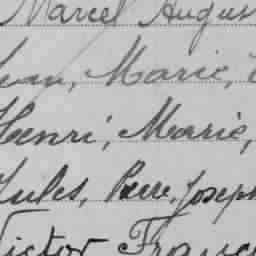 Marcel Augus
Jean, Marie,
Henri, Marie,
Jules, Pierre, Joseph
Victor Franç